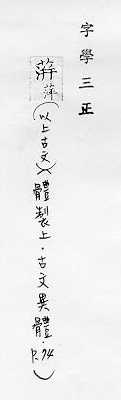 字學三正
蓱萍(以上古文)(體製上·古文異體·P.74)